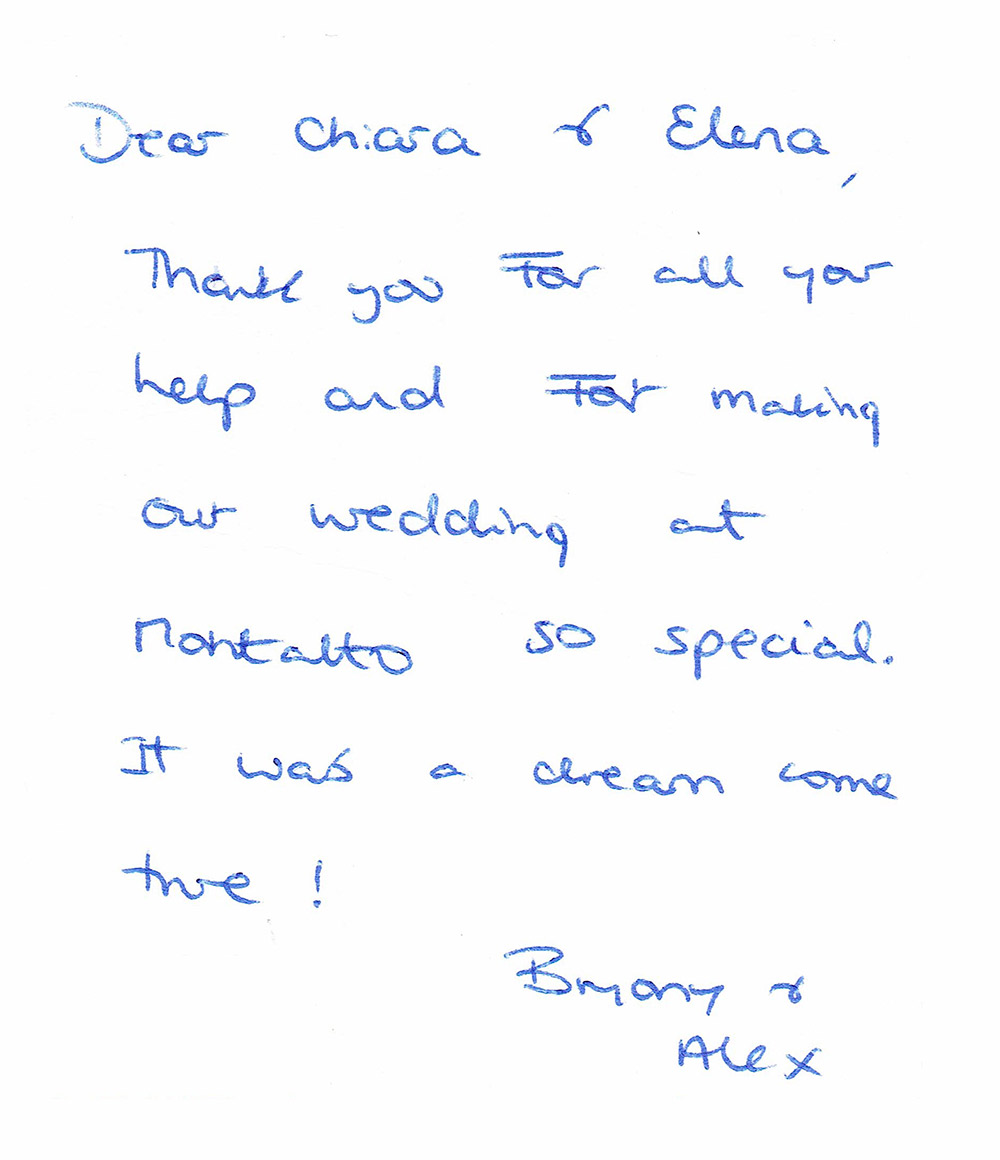 Dear Chiara & Elena,
Thank you For all your
help and For making
our wedding at
Montalto so special.
It was a dream come
true !
Bryony &
Alex